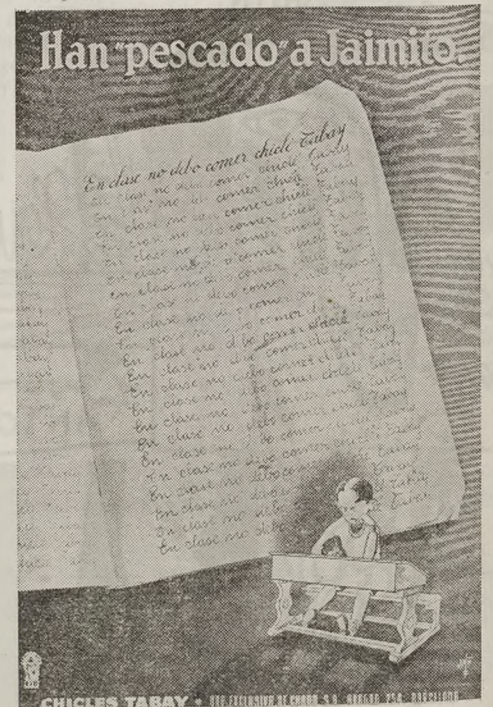 Han "pescado" a Jaimito.
En clase no debo comer chicle Tabay
En clase no debo comer chicle Tabay
En clase no debo comer chicle Tabay
En clase no debo comer chicle Tabay
En clase no debo comer chicle Tabay
En clase no debo comer chicle Tabay
En clase no debo comer chicle Tabay
En clase no debo comer chicle Tabay
En clase no debo comer chicle Tabay
En clase no debo comer chicle Tabay
En clase no debo comer chicle Tabay
En clase no debo comer chicle Tabay
En clase no debo comer chicle Tabay
En clase no debo comer chicle Tabay
En clase no debo comer chicle Tabay
En clase no debo comer chicle Tabay
En clase no debo comer chicle Tabay
En clase no debo comer chicle Tabay
En clase no debo comer chicle Tabay
En clase no debo comer chicle Tabay
En clase no debo Tabay
En clase no debo Tabay
CHICLES TABAY • EXCLUSIVO DE S.A. BARCELONA